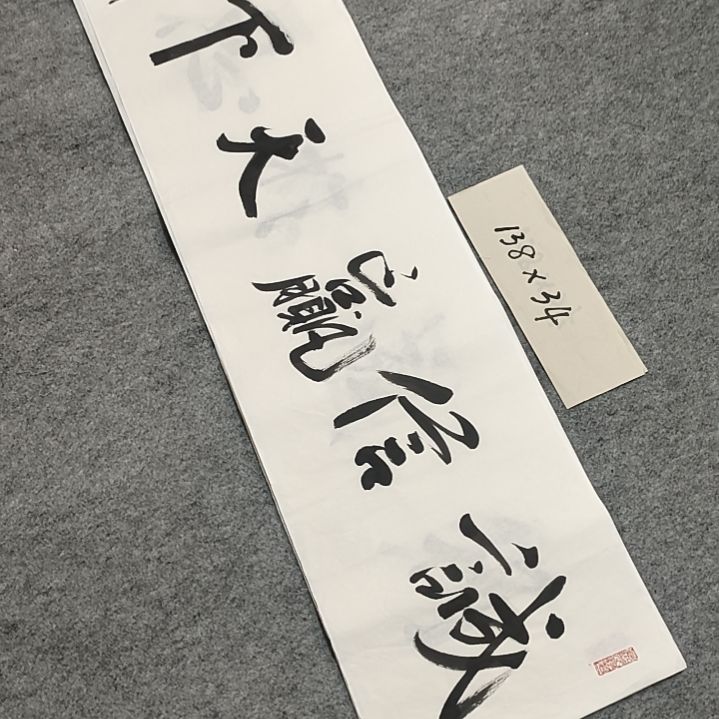 誠信贏天下
138×34